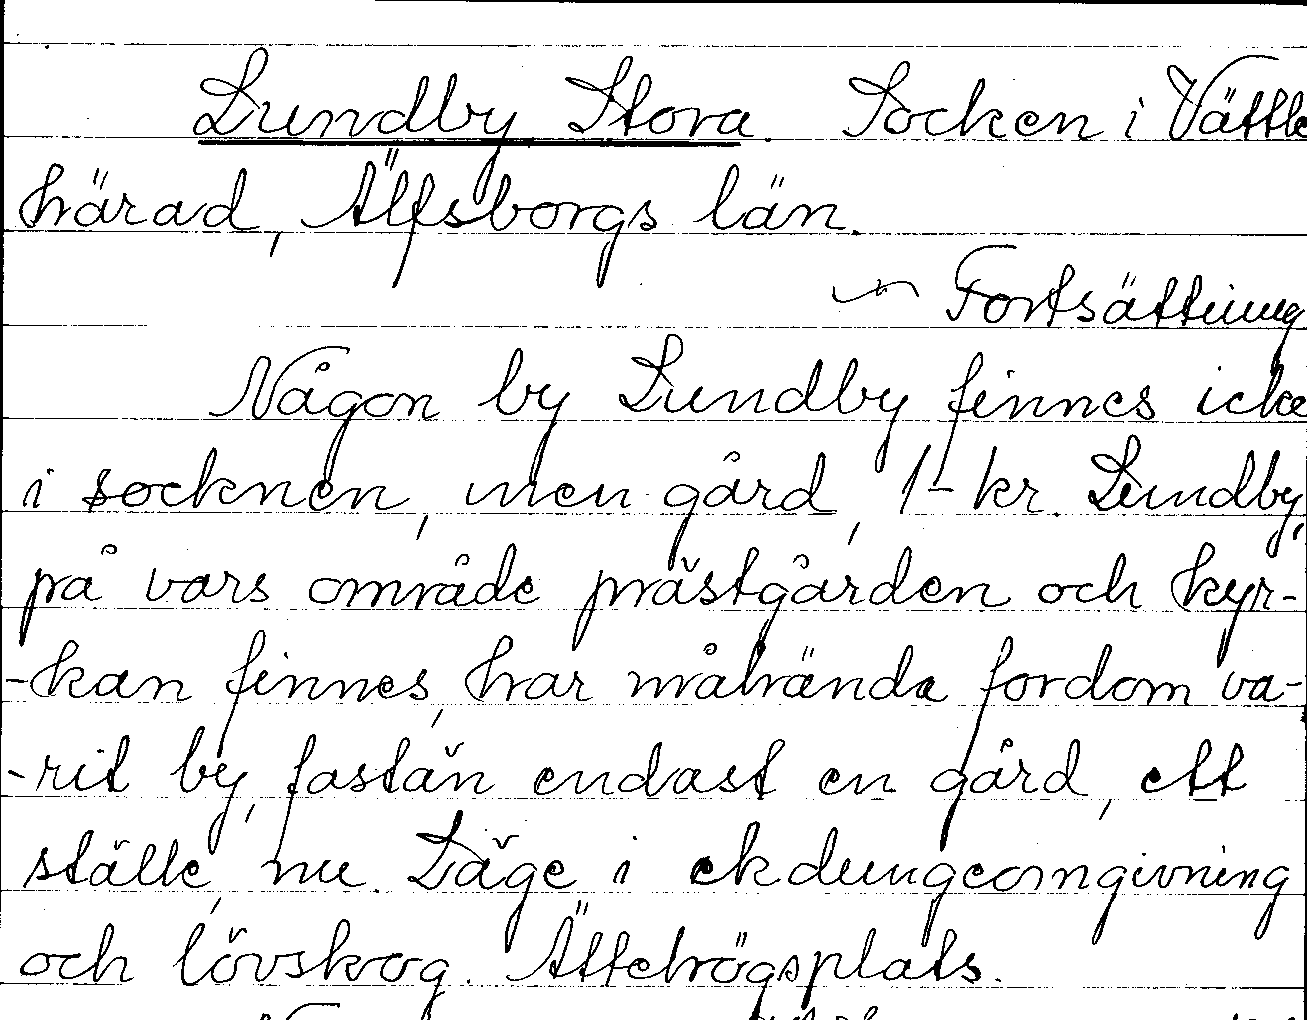 Lundby Stora. Socken i Vättle
härad, Älfsborgs län.
Fortsättning
Någon by Lundby finnes icke
i socknen, men gård, 1-kr. Lundby,
på vars område prästgården och kyr-
-kan finnes, har måhända fordom va-
-rit by, fastän endast en gård, ett
ställe, nu. Läge i ekdungeomgivning
och lövskog. Ättehögsplats.